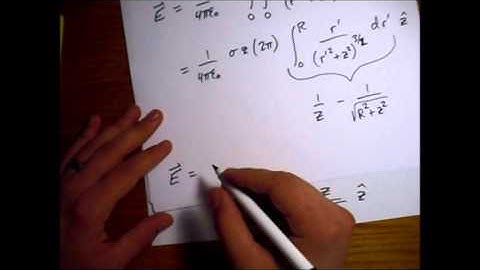 E⃗ = 1/4πε₀ ∫₀ ∫₀
= 1/4πε₀ σ z (2π) ∫₀ᴿ r'/(r'² + z²)^3/2 dr' ẑ
1/z − 1/√(R² + z²)
E⃗ =
z ẑ